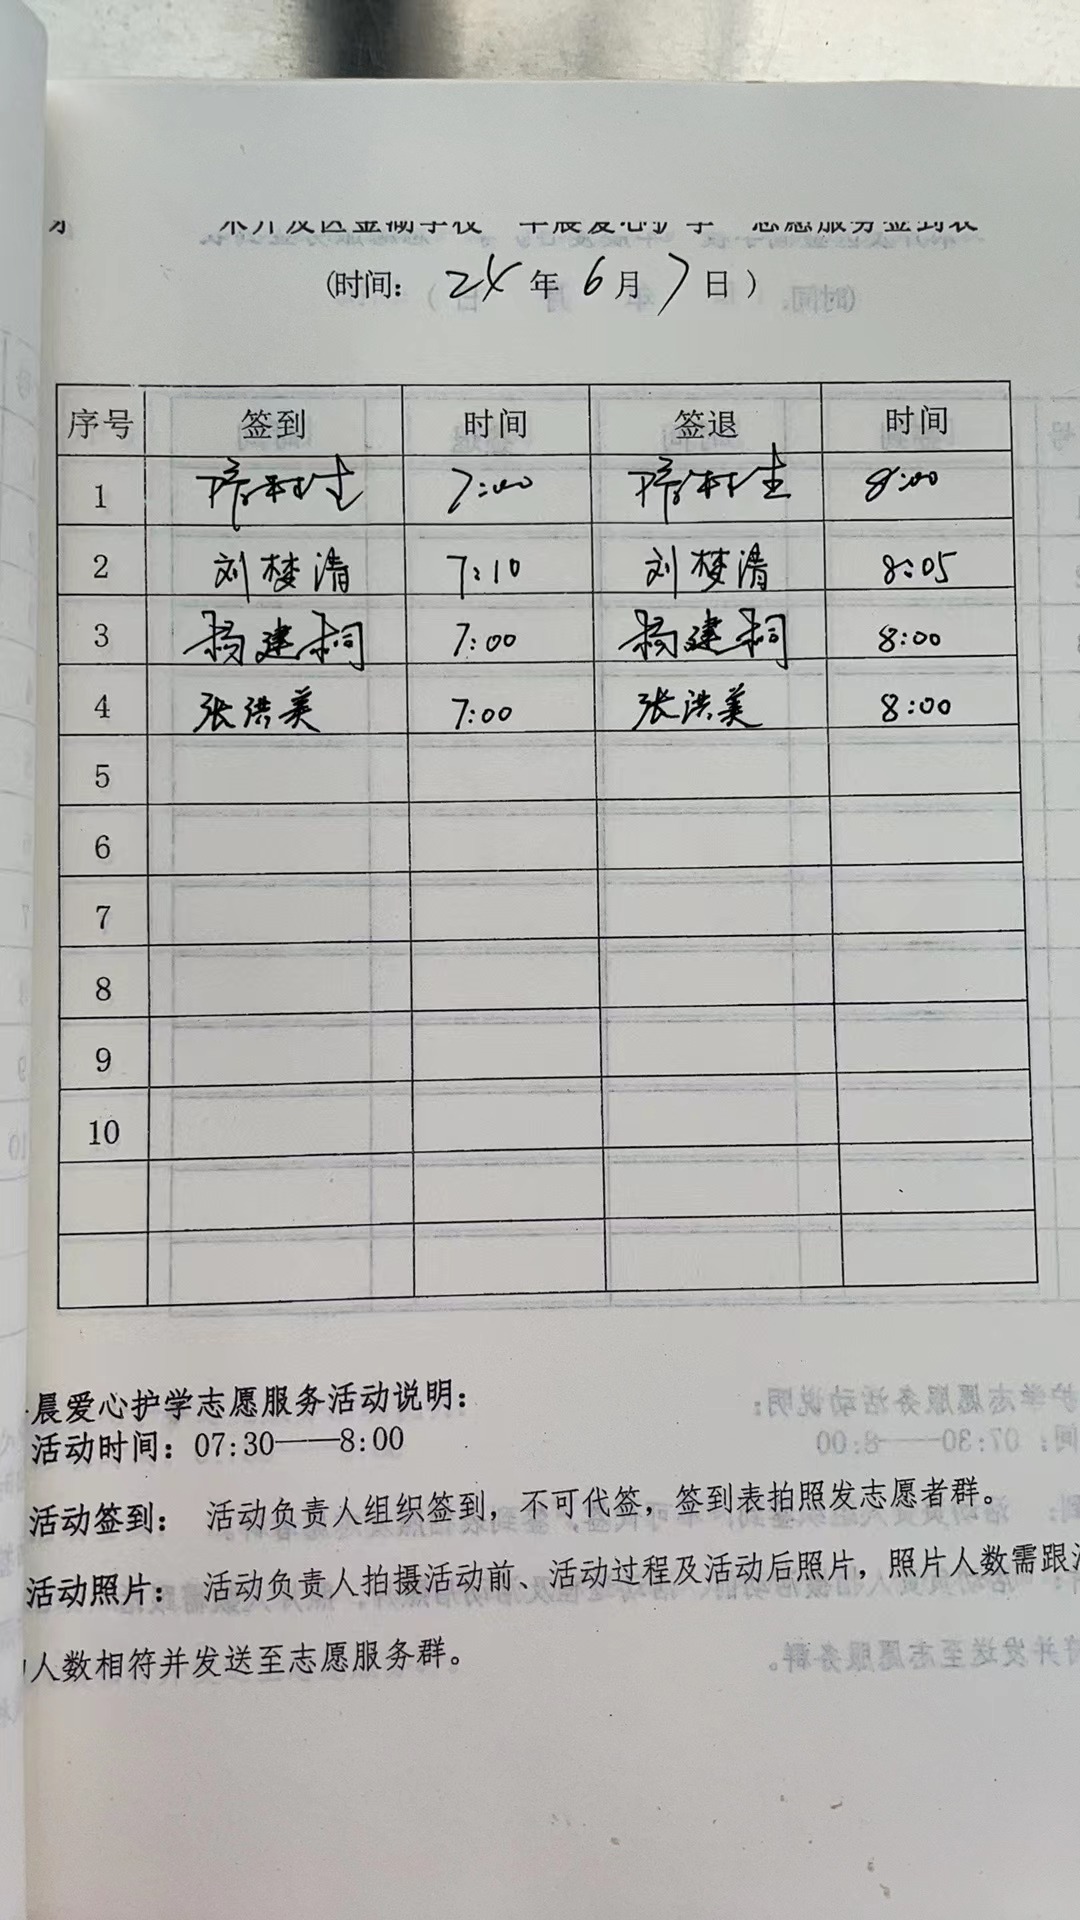 术开发区金湖学校“早晨爱心护学”志愿服务签到表
(时间: 24年6月7日)
序号 签到 时间 签退 时间
1 7:00 8:00
2 刘梦清 7:10 刘梦清 8:05
3 杨建 7:00 杨建 8:00
4 张洪美 7:00 张洪美 8:00
5
6
7
8
9
10
晨爱心护学志愿服务活动说明:
活动时间: 07:30——8:00
活动签到: 活动负责人组织签到, 不可代签, 签到表拍照发志愿者群。
活动照片: 活动负责人拍摄活动前、活动过程及活动后照片, 照片人数需跟
人数相符并发送至志愿服务群。